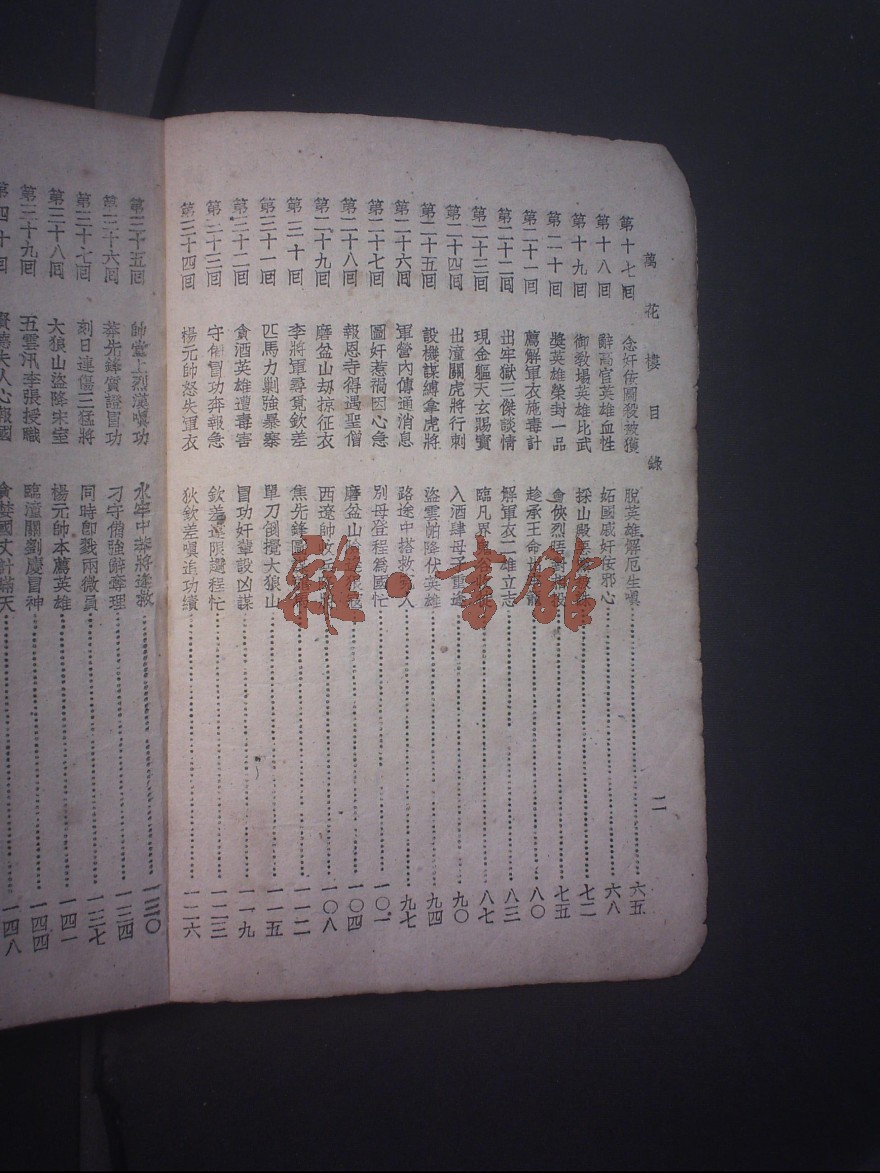 萬花樓目錄 二
第十七回 念奸侫圖殺被獲 脫英雄解厄生嗔 六五
第十八回 辭高官英雄血性 妬國戚奸侫邪心 六八
第十九回 御敎場英雄比武 採山殿 七二
第二十回 獎英雄榮封一品 會俠烈 七五
第二十一回 薦解軍衣施毒計 趁承王命 八〇
第二十二回 出牢獄三傑談情 解軍衣二雄立志 八三
第二十三回 現金軀天玄賜寶 臨凡界 八七
第二十四回 出潼關虎將行刺 入酒肆母子重逢 九〇
第二十五回 設機謀縛拿虎將 盜雲帕降伏英雄 九四
第二十六回 軍營內傳通消息 路途中搭救 人 九七
第二十七回 圖奸惹禍因心急 別母登程爲國忙 一〇一
第二十八回 報恩寺得遇聖僧 磨盆山 一〇四
第二十九回 磨盆山劫掠征衣 西遼帥 一〇八
第三十回 李將軍尋覓欽差 焦先鋒圖 一一二
第三十一回 匹馬力剿強暴寨 單刀倒攪大狼山 一一五
第三十二回 貪酒英雄遭毒害 冒功奸輩設凶謀 一一九
第三十三回 守備冒功奔報急 欽差違限趲程忙 一二三
第三十四回 楊元帥怒失軍衣 狄欽差嗔追功績 一二六
第三十五回 帥堂上烈漢嗔功 水牢中莽將逢救 一三〇
第三十六回 莽先鋒質證冒功 刁守備強辭奪理 一三四
第三十七回 刻日連傷三猛將 同時卽戮兩微員 一三七
第三十八回 大狼山盜降宋室 楊元帥本薦英雄 一四一
第三十九回 五雲汛李張授職 臨潼關劉慶冒神 一四四
第四十回 夫人心報國 貪婪國丈計瞞天 一四八
雜·書館